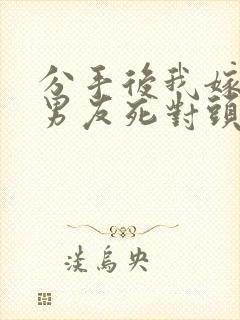 分手後我嫁
男友死對頭
淡烏央